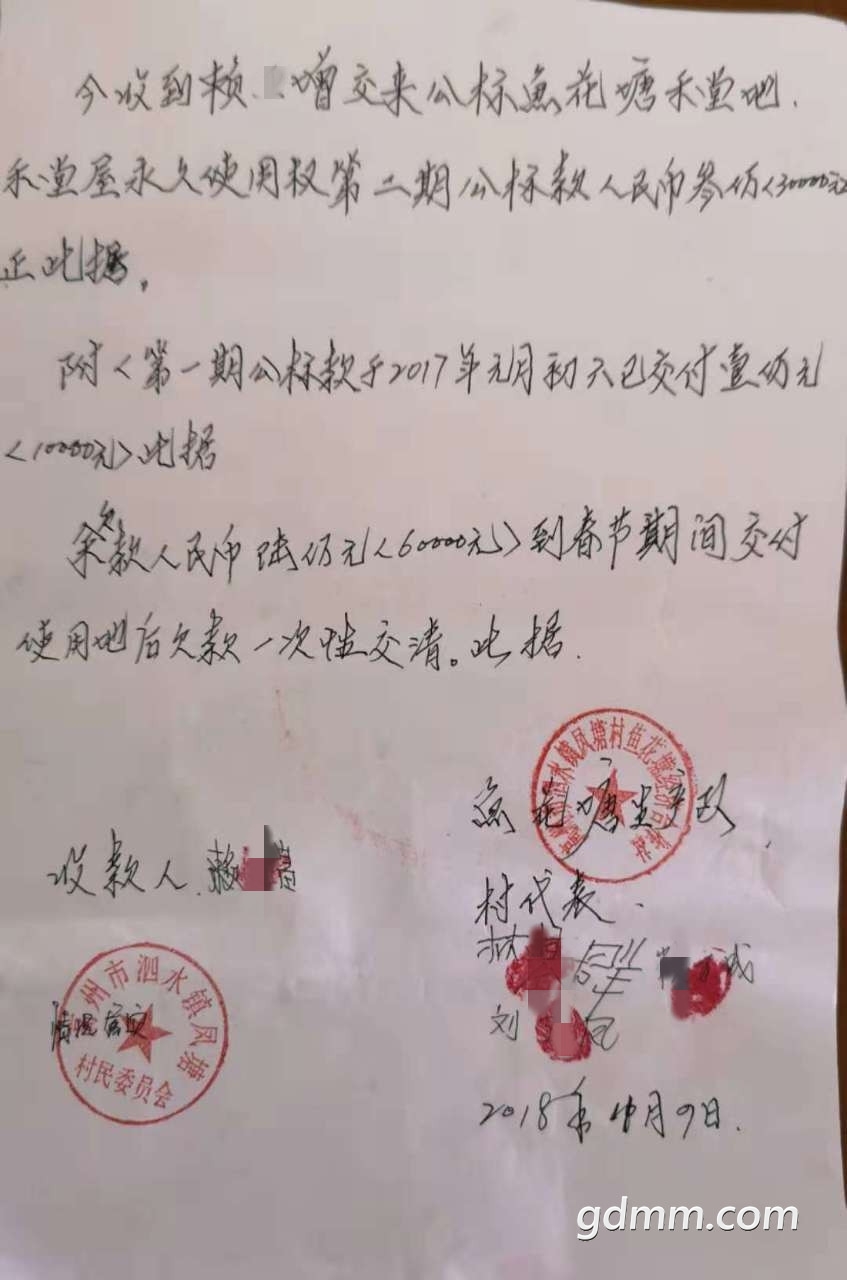 今收到赖 增交来公标鱼花塘禾堂地、
禾堂屋永久使用权第二期公标款人民币叁仟<30000元
正此据。
附<第一期公标款于2017年元月初六已交付壹仟元
<10000元>此据
余欠款人民币陆仟元<60000元>到春节期间交付
使用地后欠款一次性交清。此据.
鱼花塘生产队
收款人.赖
村代表.
刘
州市泗水镇凤塘
村民委员会
情况属实
水镇凤塘村鱼花塘经济合作社
2018年4月9日.
gdmm.com